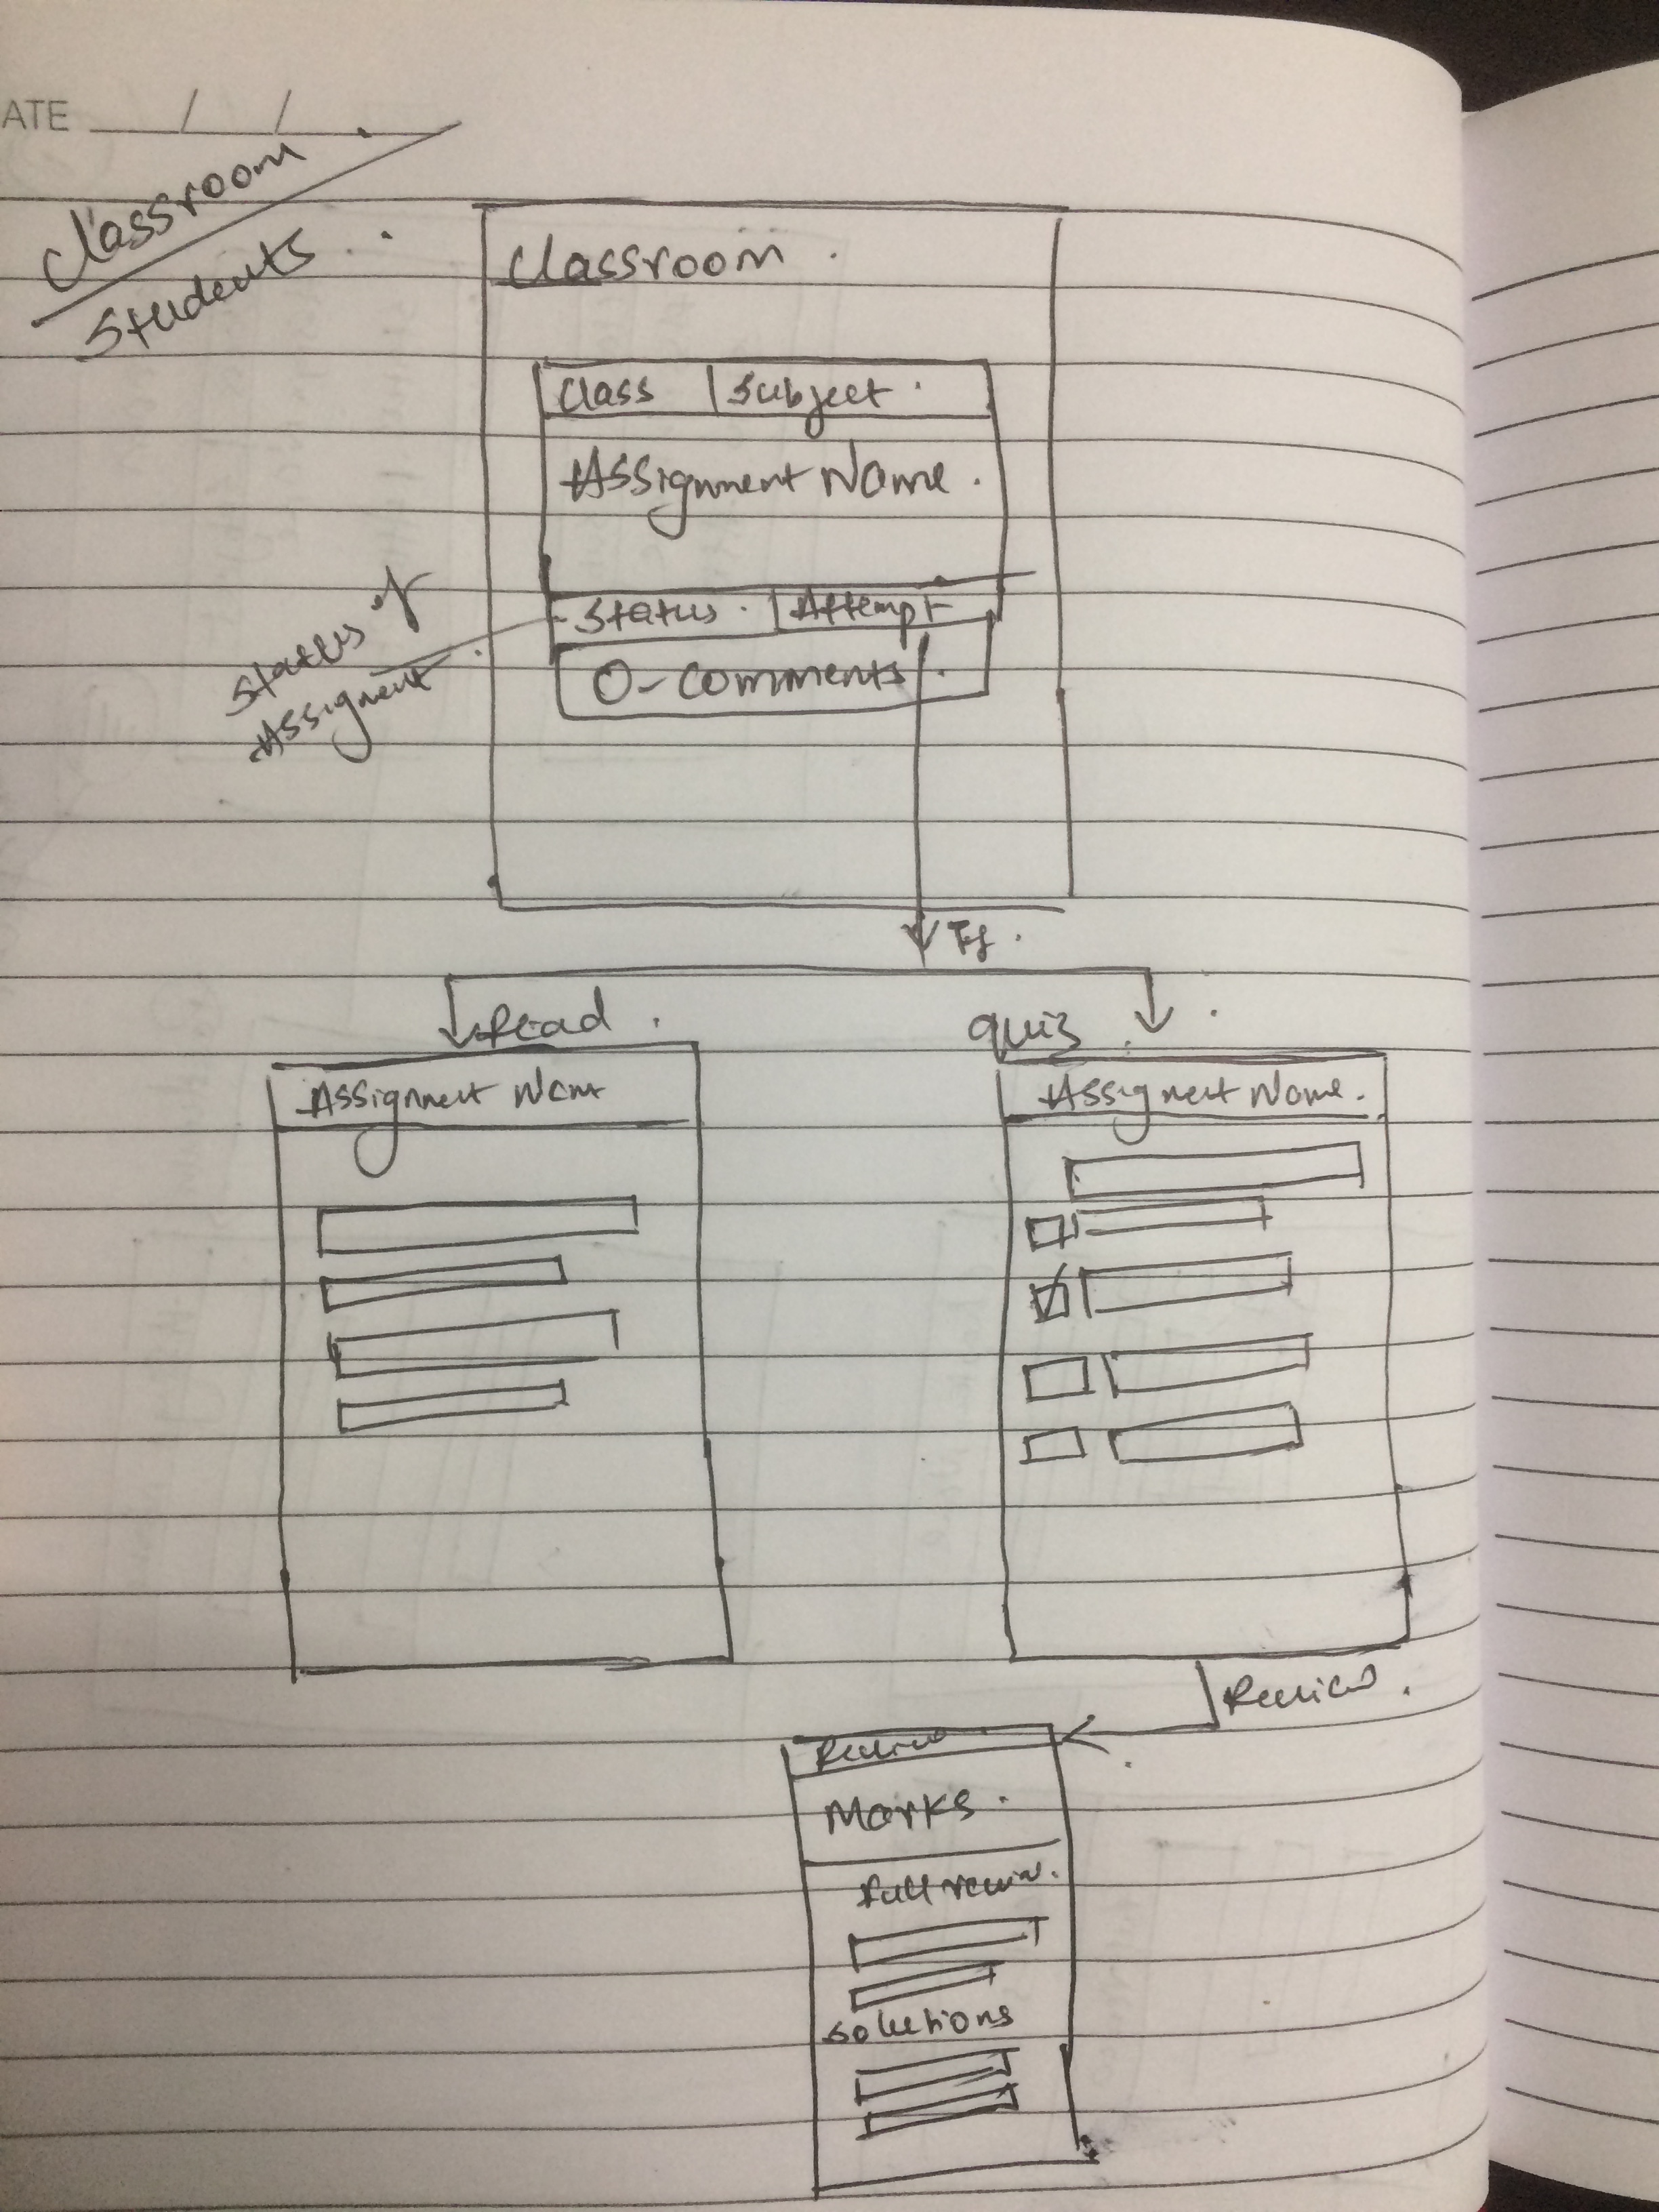 ATE / /
Classroom
Students
Classroom
Class Subject
Assignment Name
Status Attempt
0- Comments
Status of
Assigment
If
Read
quiz
Assignment Name
Assignment Name
Review
Review
Marks
full review
solutions